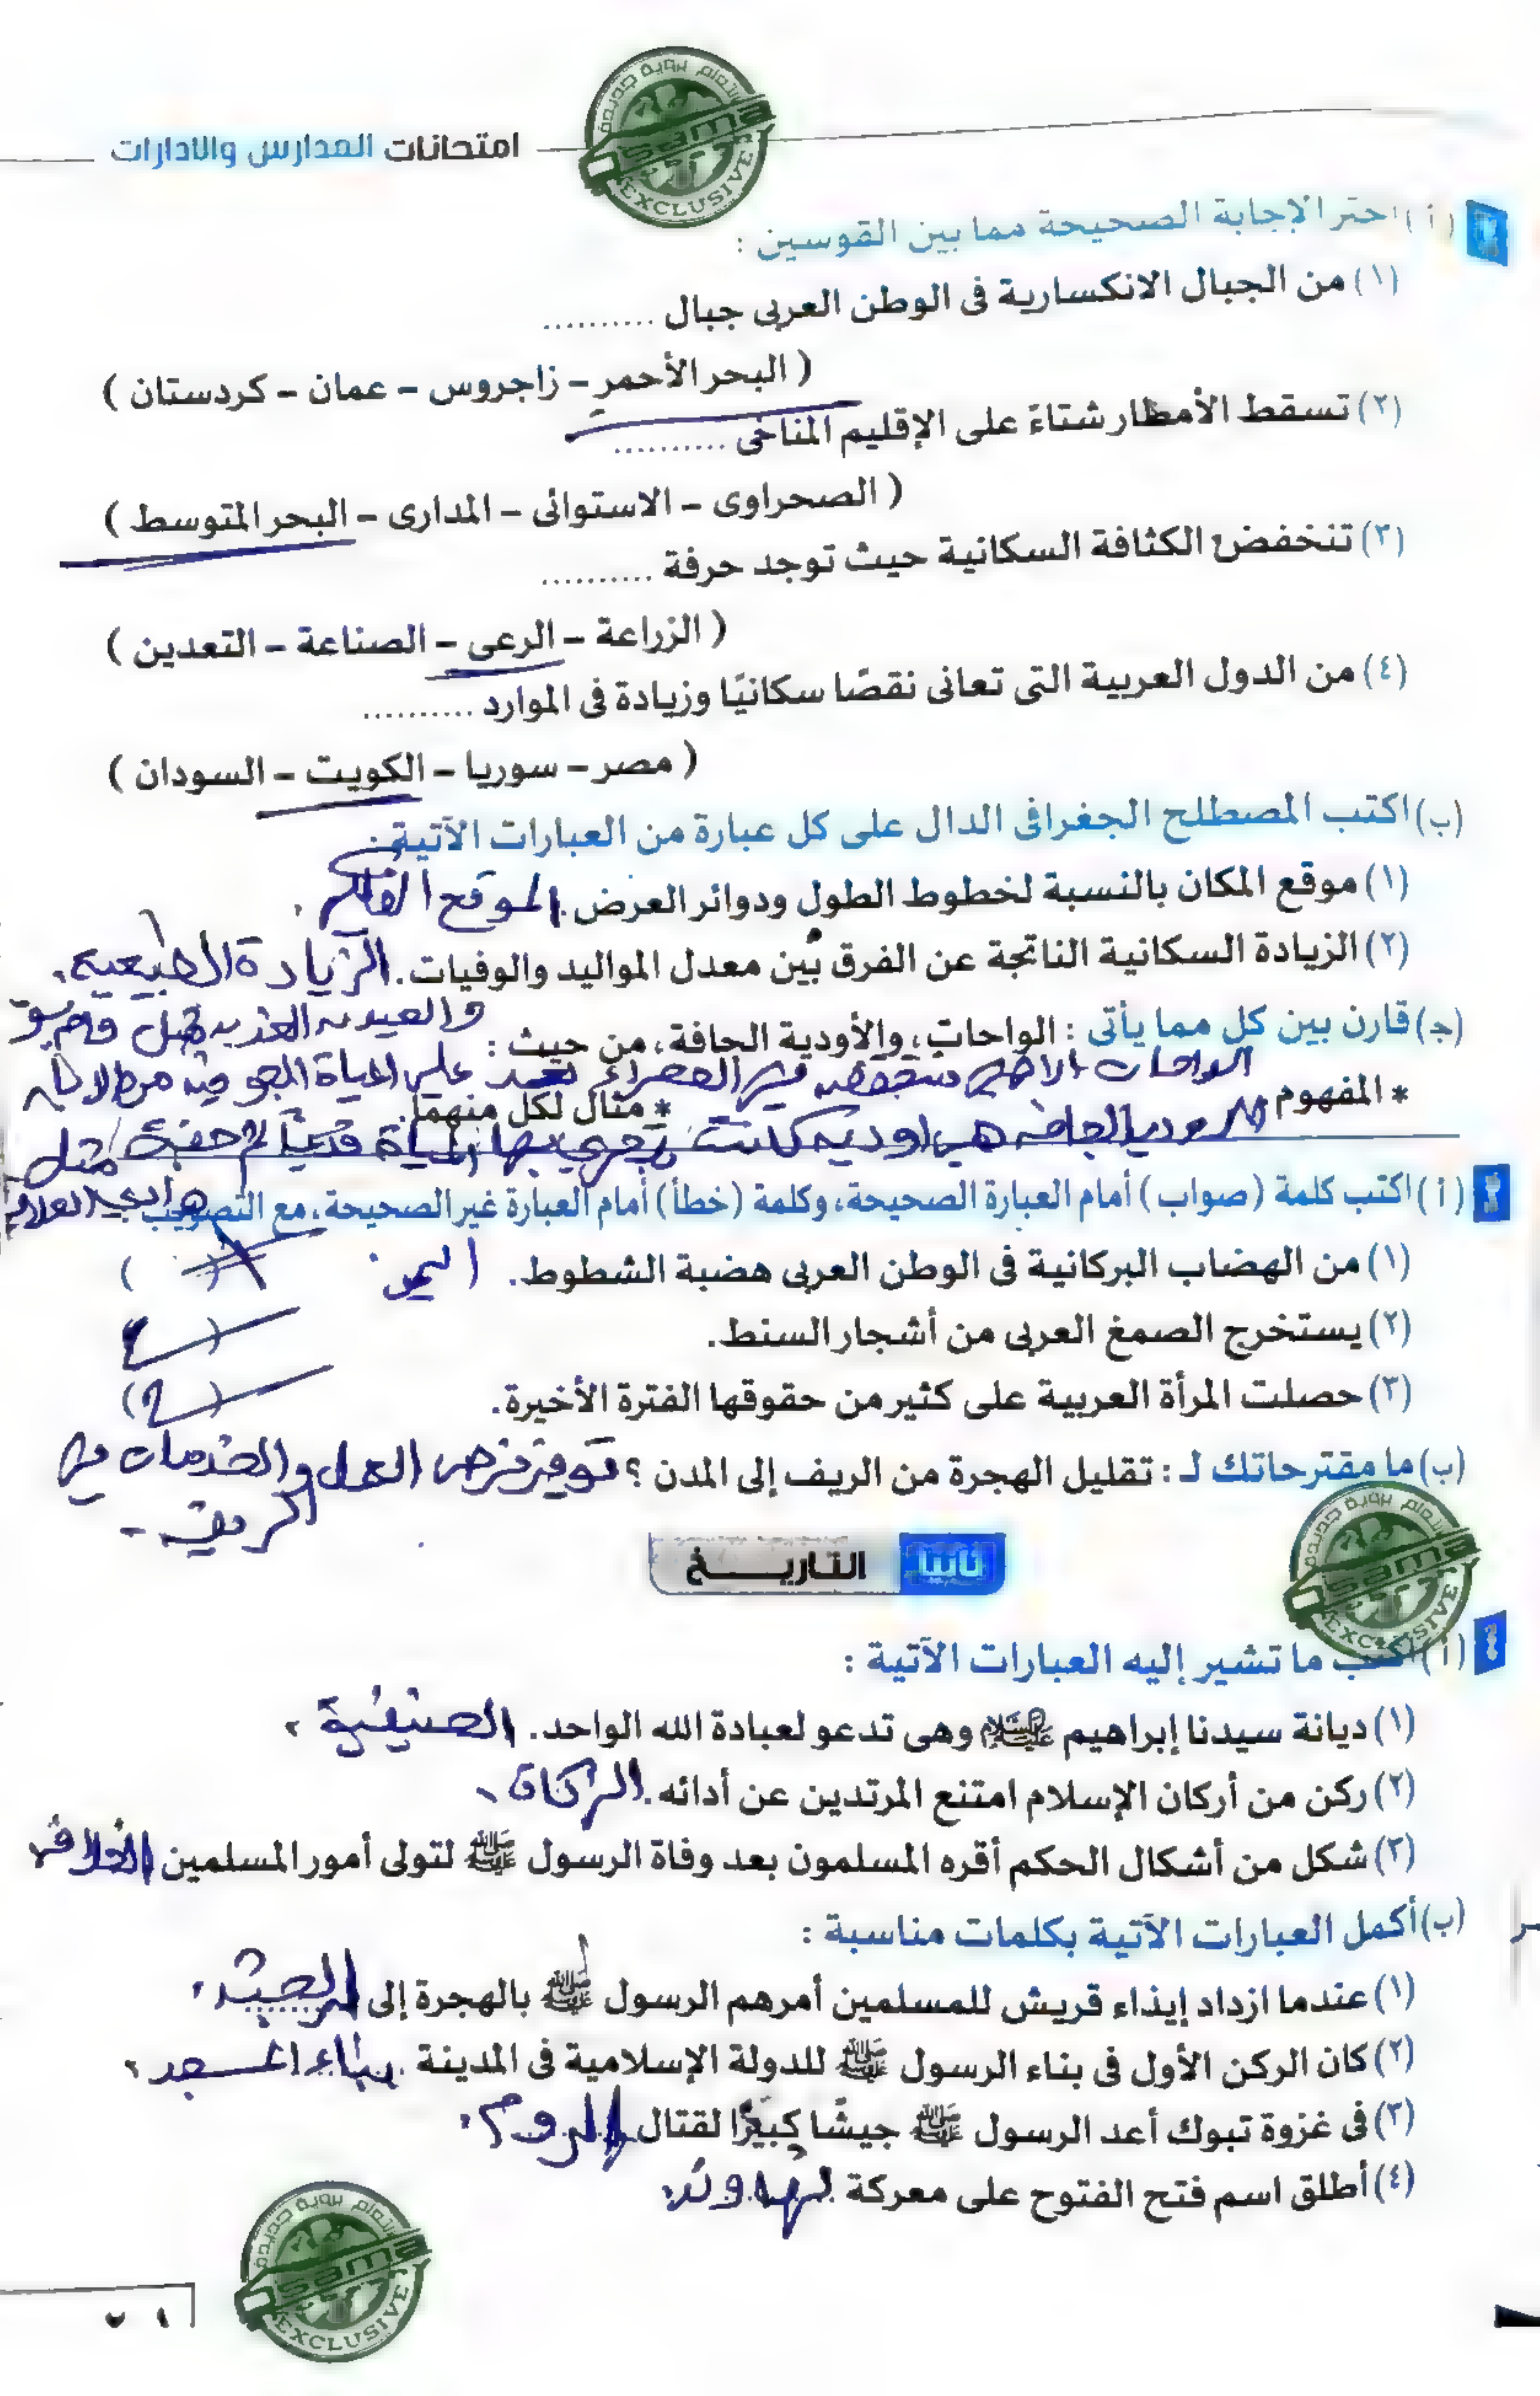 امتحانات المدارس والادارات
(أ) اختر الإجابة الصحيحة مما بين القوسين :
(١) من الجبال الانكسارية فى الوطن العربى جبال ..........
( البحر الأحمر - زاجروس - عمان - كردستان )
(٢) تسقط الأمطار شتاءً على الإقليم المناخى ..........
( الصحراوى - الاستوائى - المدارى - البحر المتوسط )
(٣) تنخفض الكثافة السكانية حيث توجد حرفة ..........
( الزراعة - الرعى - الصناعة - التعدين )
(٤) من الدول العربية التى تعانى نقصًا سكانيًا وزيادة فى الموارد ..........
( مصر - سوريا - الكويت - السودان )
(ب) اكتب المصطلح الجغرافى الدال على كل عبارة من العبارات الآتية :
(١) موقع المكان بالنسبة لخطوط الطول ودوائر العرض. الموقع الفلكى
(٢) الزيادة السكانية الناتجة عن الفرق بين معدل المواليد والوفيات. الزيادة الطبيعية.
والعيون العذبة مثل
(جـ) قارن بين كل مما يأتى : الواحات، والأودية الجافة، من حيث :
الواحات الصحراء على المياة الجوفية
* المفهوم * مثال لكل منهما.
الجافة هى اودية كانت تجرى بها المياة قديما ثم جفت مثل
(أ) اكتب كلمة (صواب) أمام العبارة الصحيحة، وكلمة (خطأ) أمام العبارة غير الصحيحة، مع التصويب
(١) من الهضاب البركانية فى الوطن العربى هضبة الشطوط. اليمن ( )
(٢) يستخرج الصمغ العربى من أشجار السنط. ( )
(٣) حصلت المرأة العربية على كثير من حقوقها الفترة الأخيرة. ( )
(ب) ما مقترحاتك لـ : تقليل الهجرة من الريف إلى المدن ؟ توفير فرص العمل والخدمات فى
الريف -
ثانيًا التاريـــخ
(أ) اكتب ما تشير إليه العبارات الآتية :
(١) ديانة سيدنا إبراهيم عليه السلام وهى تدعو لعبادة الله الواحد. الحنيفية
(٢) ركن من أركان الإسلام امتنع المرتدين عن أدائه. الزكاة
(٣) شكل من أشكال الحكم أقره المسلمون بعد وفاة الرسول ﷺ لتولى أمور المسلمين الخلافة
(ب) أكمل العبارات الآتية بكلمات مناسبة :
(١) عندما ازداد إيذاء قريش للمسلمين أمرهم الرسول ﷺ بالهجرة إلى الحبشة
(٢) كان الركن الأول فى بناء الرسول ﷺ للدولة الإسلامية فى المدينة بناء المسجد
(٣) فى غزوة تبوك أعد الرسول ﷺ جيشًا كبيرًا لقتال الروم
(٤) أطلق اسم فتح الفتوح على معركة نهاوند
Osama
EXCLUSIVE